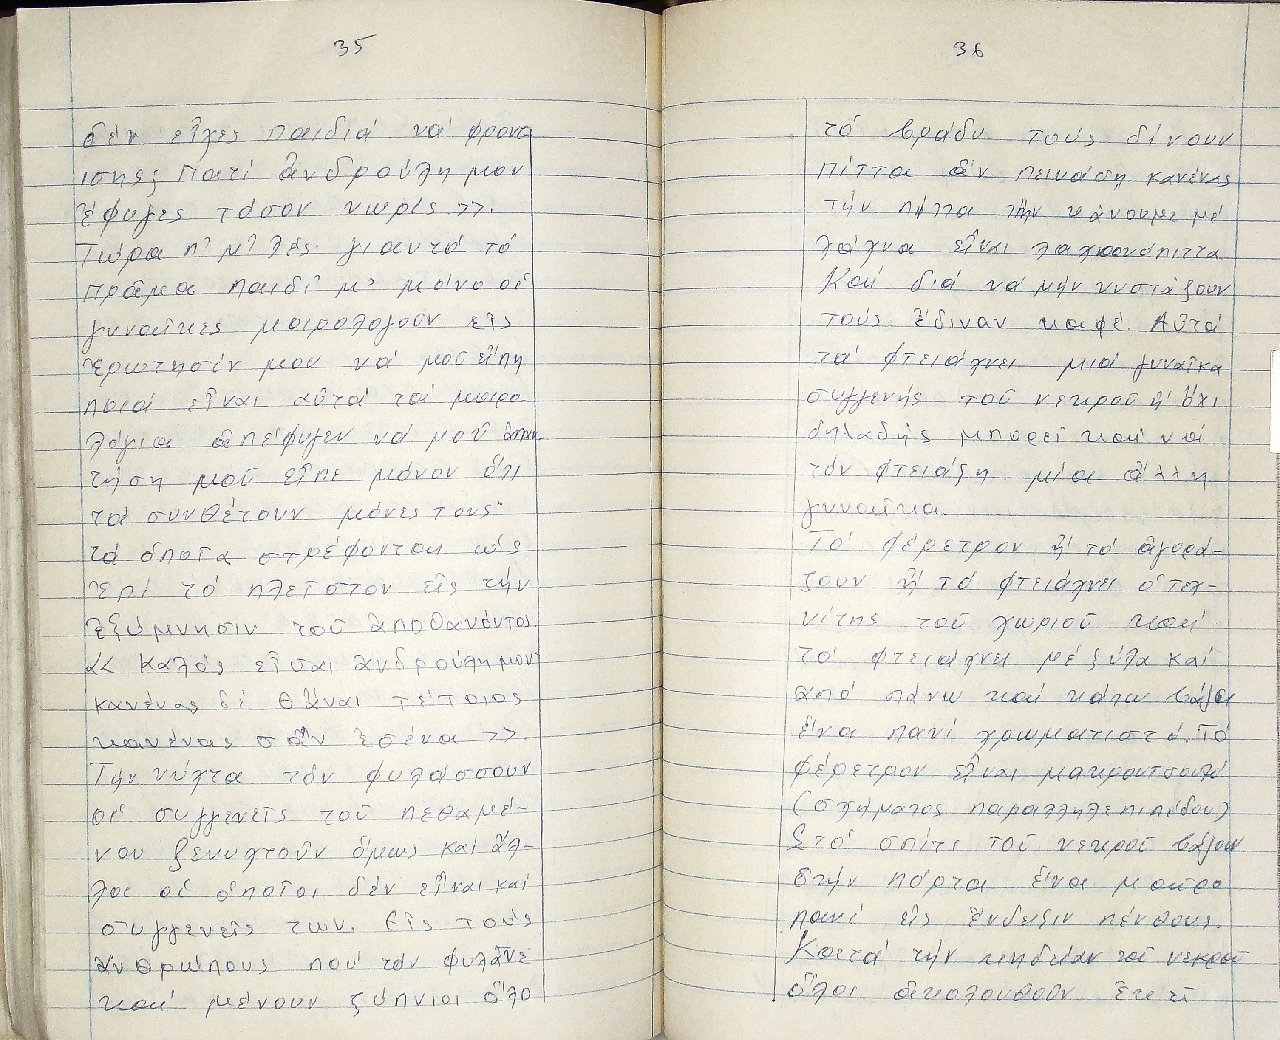 35
δέν εἶχες παιδιά νά φρον
ισης; Γιατί Ἀνδρούλη μου
ἔφυγες τόσον νωρίς >>.
Τώρα π' μ' λές γιαυτό τό
πρᾶμα παιδί μ' μόνο οἱ
γυναῖκες μοιρολογοῦν εἰς
ἐρώτησίν μου νά μοῦ εἴπη
ποιά εἶναι αὐτά τά μοιρο
λόγια ἀπέφυγεν νά μοῦ ἀπαν
τήση μοῦ εἶπε μόνον ὅτι
τά συνθέτουν μόνες τους"
τά ὁποῖα στρέφονται ὡς
ἐπί τό πλεῖστον εἰς τήν
ἐξύμνησιν τοῦ ἀποθανόντος
<< Καλός εἶσαι Ἀνδρούλη μου
κανένας δέ θἆναι τέτοιος
κανένας σάν ἐσένα >>.
Τήν νύχτα τόν φυλάσσουν
οἱ συγγενεῖς τοῦ πεθαμέ-
νου ξενυχτοῦν ὅμως καί ἄλ-
λοι οἱ ὁποῖοι δέν εἶναι καί
συγγενεῖς των. Εἰς τούς
ἀνθρώπους πού τόν φυλᾶνε
καί μένουν ξύπνιοι ὅλο
36
τό βράδυ τούς δίνουν
πίττα ἄν πεινάση κανένας
τήν πίττα τήν κάνουμε μέ
λάχνα εἶναι λαχνόπιττα
Καί διά νά μήν νυστάξουν
τούς ἔδιναν καφέ. Αὐτά
τά φτειάχνει μιά γυναῖκα
συγγενής τοῦ νεκροῦ ἤ ὄχι
δηλαδής μπορεῖ καί νά
τόν φτειάξη μία ἄλλη
γυναῖκα.
Τό φέρετρον ἤ τό ἀγορά-
ζουν ἤ τό φτειάχνει ὁ τεχ-
νίτης τοῦ χωριοῦ καί
τό φτειάχνει μέ ξύλα καί
ἀπό πάνω καί κάτω βάζει
ἕνα πανί χρωματιστό. Τό
φέρετρον εἶναι μακρουτσουλό
(σχήματος παραλληλεπιπέδου)
Στό σπίτι τοῦ νεκροῦ βάζουν
στήν πόρτα ἕνα μαῦρο
πανί εἰς ἔνδειξιν πένθους.
Κατά τήν κηδείαν τοῦ νεκροῦ
ὅλοι ἀκολουθοῦν ἐκεῖ